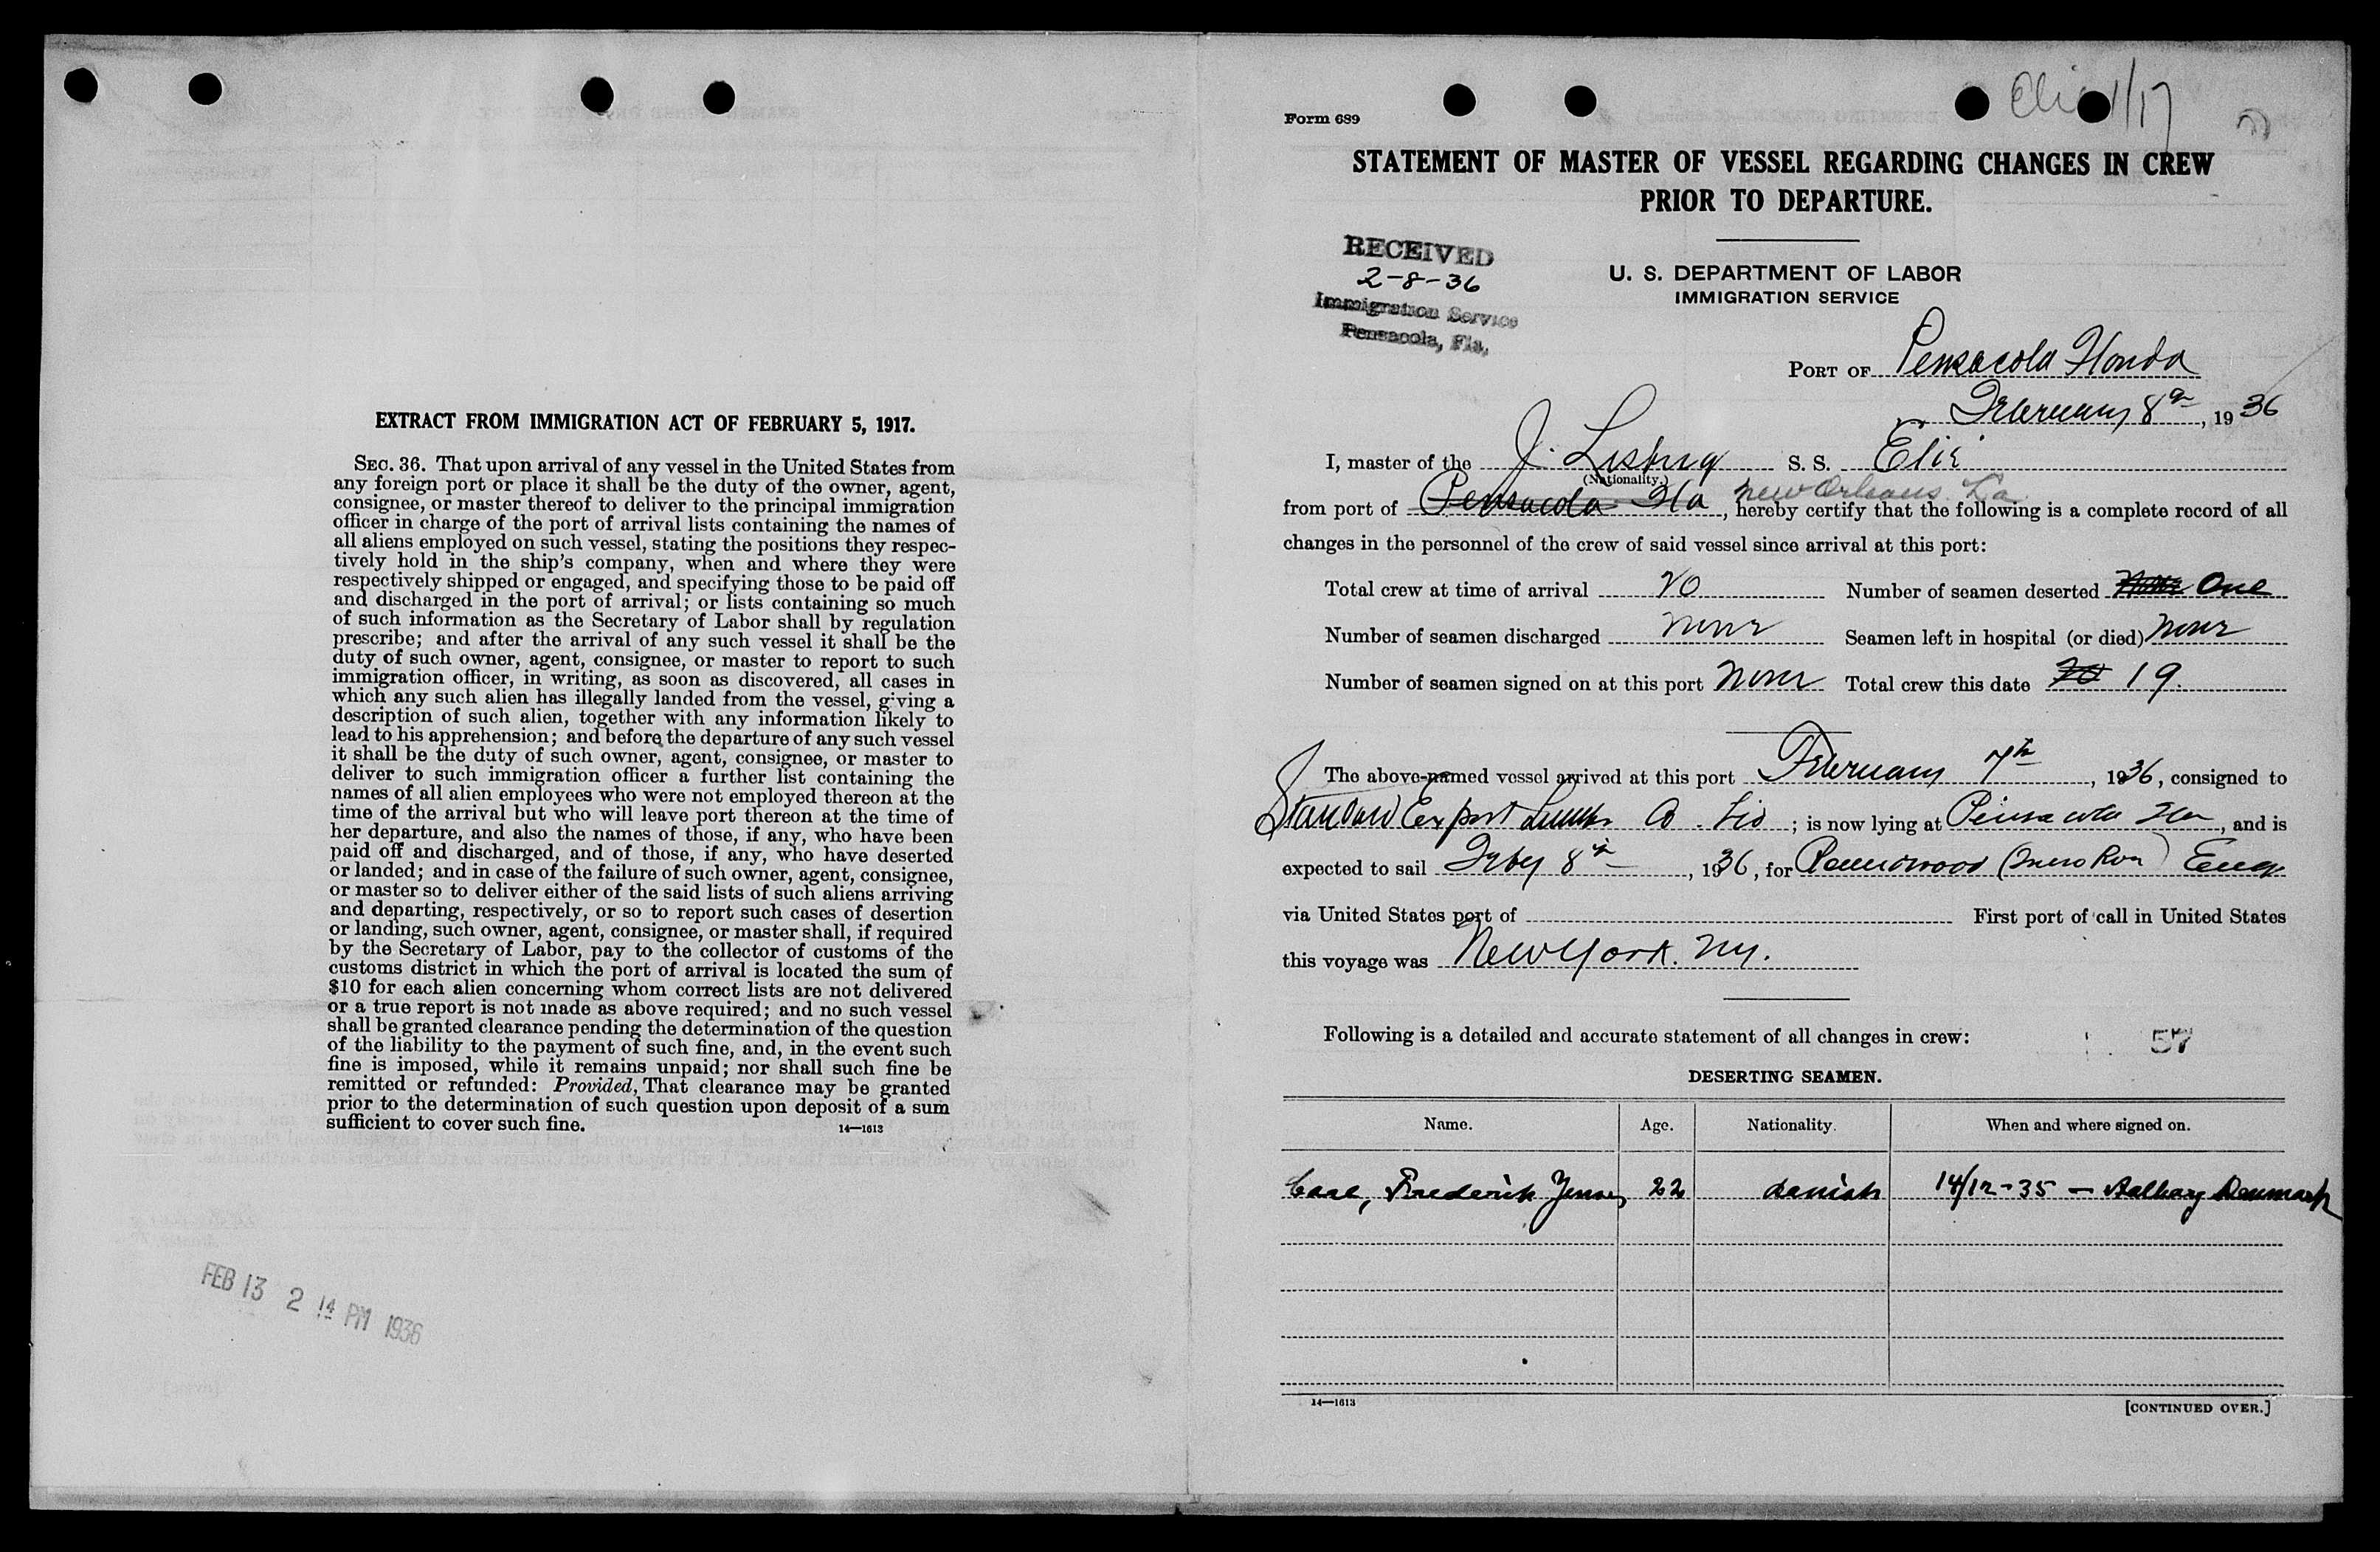 EXTRACT FROM IMMIGRATION ACT OF FEBRUARY 5, 1917.
SEC. 36. That upon arrival of any vessel in the United States from
any foreign port or place it shall be the duty of the owner, agent,
consignee, or master thereof to deliver to the principal immigration
officer in charge of the port of arrival lists containing the names of
all aliens employed on such vessel, stating the positions they respec-
tively hold in the ship's company, when and where they were
respectively shipped or engaged, and specifying those to be paid off
and discharged in the port of arrival; or lists containing so much
of such information as the Secretary of Labor shall by regulation
prescribe; and after the arrival of any such vessel it shall be the
duty of such owner, agent, consignee, or master to report to such
immigration officer, in writing, as soon as discovered, all cases in
which any such alien has illegally landed from the vessel, giving a
description of such alien, together with any information likely to
lead to his apprehension; and before the departure of any such vessel
it shall be the duty of such owner, agent, consignee, or master to
deliver to such immigration officer a further list containing the
names of all alien employees who were not employed thereon at the
time of the arrival but who will leave port thereon at the time of
her departure, and also the names of those, if any, who have been
paid off and discharged, and of those, if any, who have deserted
or landed; and in case of the failure of such owner, agent, consignee,
or master so to deliver either of the said lists of such aliens arriving
and departing, respectively, or so to report such cases of desertion
or landing, such owner, agent, consignee, or master shall, if required
by the Secretary of Labor, pay to the collector of customs of the
customs district in which the port of arrival is located the sum of
$10 for each alien concerning whom correct lists are not delivered
or a true report is not made as above required; and no such vessel
shall be granted clearance pending the determination of the question
of the liability to the payment of such fine, and, in the event such
fine is imposed, while it remains unpaid; nor shall such fine be
remitted or refunded: Provided, That clearance may be granted
prior to the determination of such question upon deposit of a sum
sufficient to cover such fine.
14—1613
FEB 13 2 14 PM 1936
Elie 1/17
Form 689
STATEMENT OF MASTER OF VESSEL REGARDING CHANGES IN CREW
PRIOR TO DEPARTURE.
RECEIVED
2-8-36
Immigration Service
Pensacola, Fla.
U. S. DEPARTMENT OF LABOR
IMMIGRATION SERVICE
PORT OF Pensacola Florida
February 8th, 1936
I, master of the S. S. Elie
(Nationality.)
from port of Pensacola Fla New Orleans La, hereby certify that the following is a complete record of all
changes in the personnel of the crew of said vessel since arrival at this port:
Total crew at time of arrival 20 Number of seamen deserted None One
Number of seamen discharged None Seamen left in hospital (or died) None
Number of seamen signed on at this port None Total crew this date 20 19.
The above-named vessel arrived at this port February 7th, 1936, consigned to
Standard Export Lumber Co. Ltd; is now lying at Pensacola Fla, and is
expected to sail Feby 8th, 1936, for Eng
via United States port of First port of call in United States
this voyage was New York. NY.
Following is a detailed and accurate statement of all changes in crew:
57
DESERTING SEAMEN.
Name. Age. Nationality. When and where signed on.
Carl, Frederik Jensen 22 danish 14/12-35 — Aalborg Denmark
14—1613
[CONTINUED OVER.]